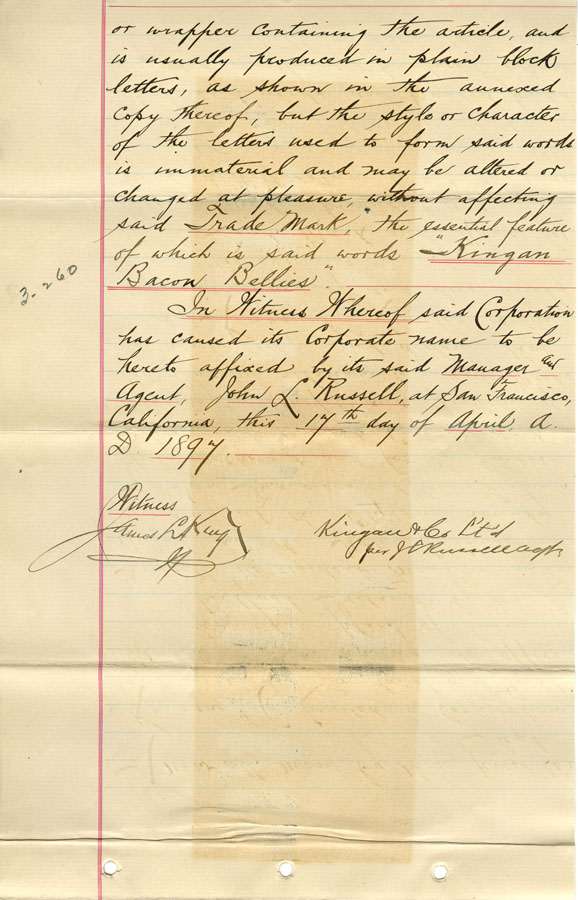 or wrapper containing the article, and
is usually produced in plain block
letters, as shown in the annexed
copy thereof, but the style or character
of the letters used to form said words
is immaterial and may be altered or
changed at pleasure, without affecting
said Trade Mark, the essential feature
of which is said words "Kingan
Bacon Bellies".
In Witness Whereof said Corporation
has caused its Corporate name to be
hereto affixed by its said Manager and
Agent, John L. Russell, at San Francisco,
California, this 17th day of April, A.
D. 1897.
3-260
Witness
James L. King
Kingan & Co L't'd
per J L Russell agt